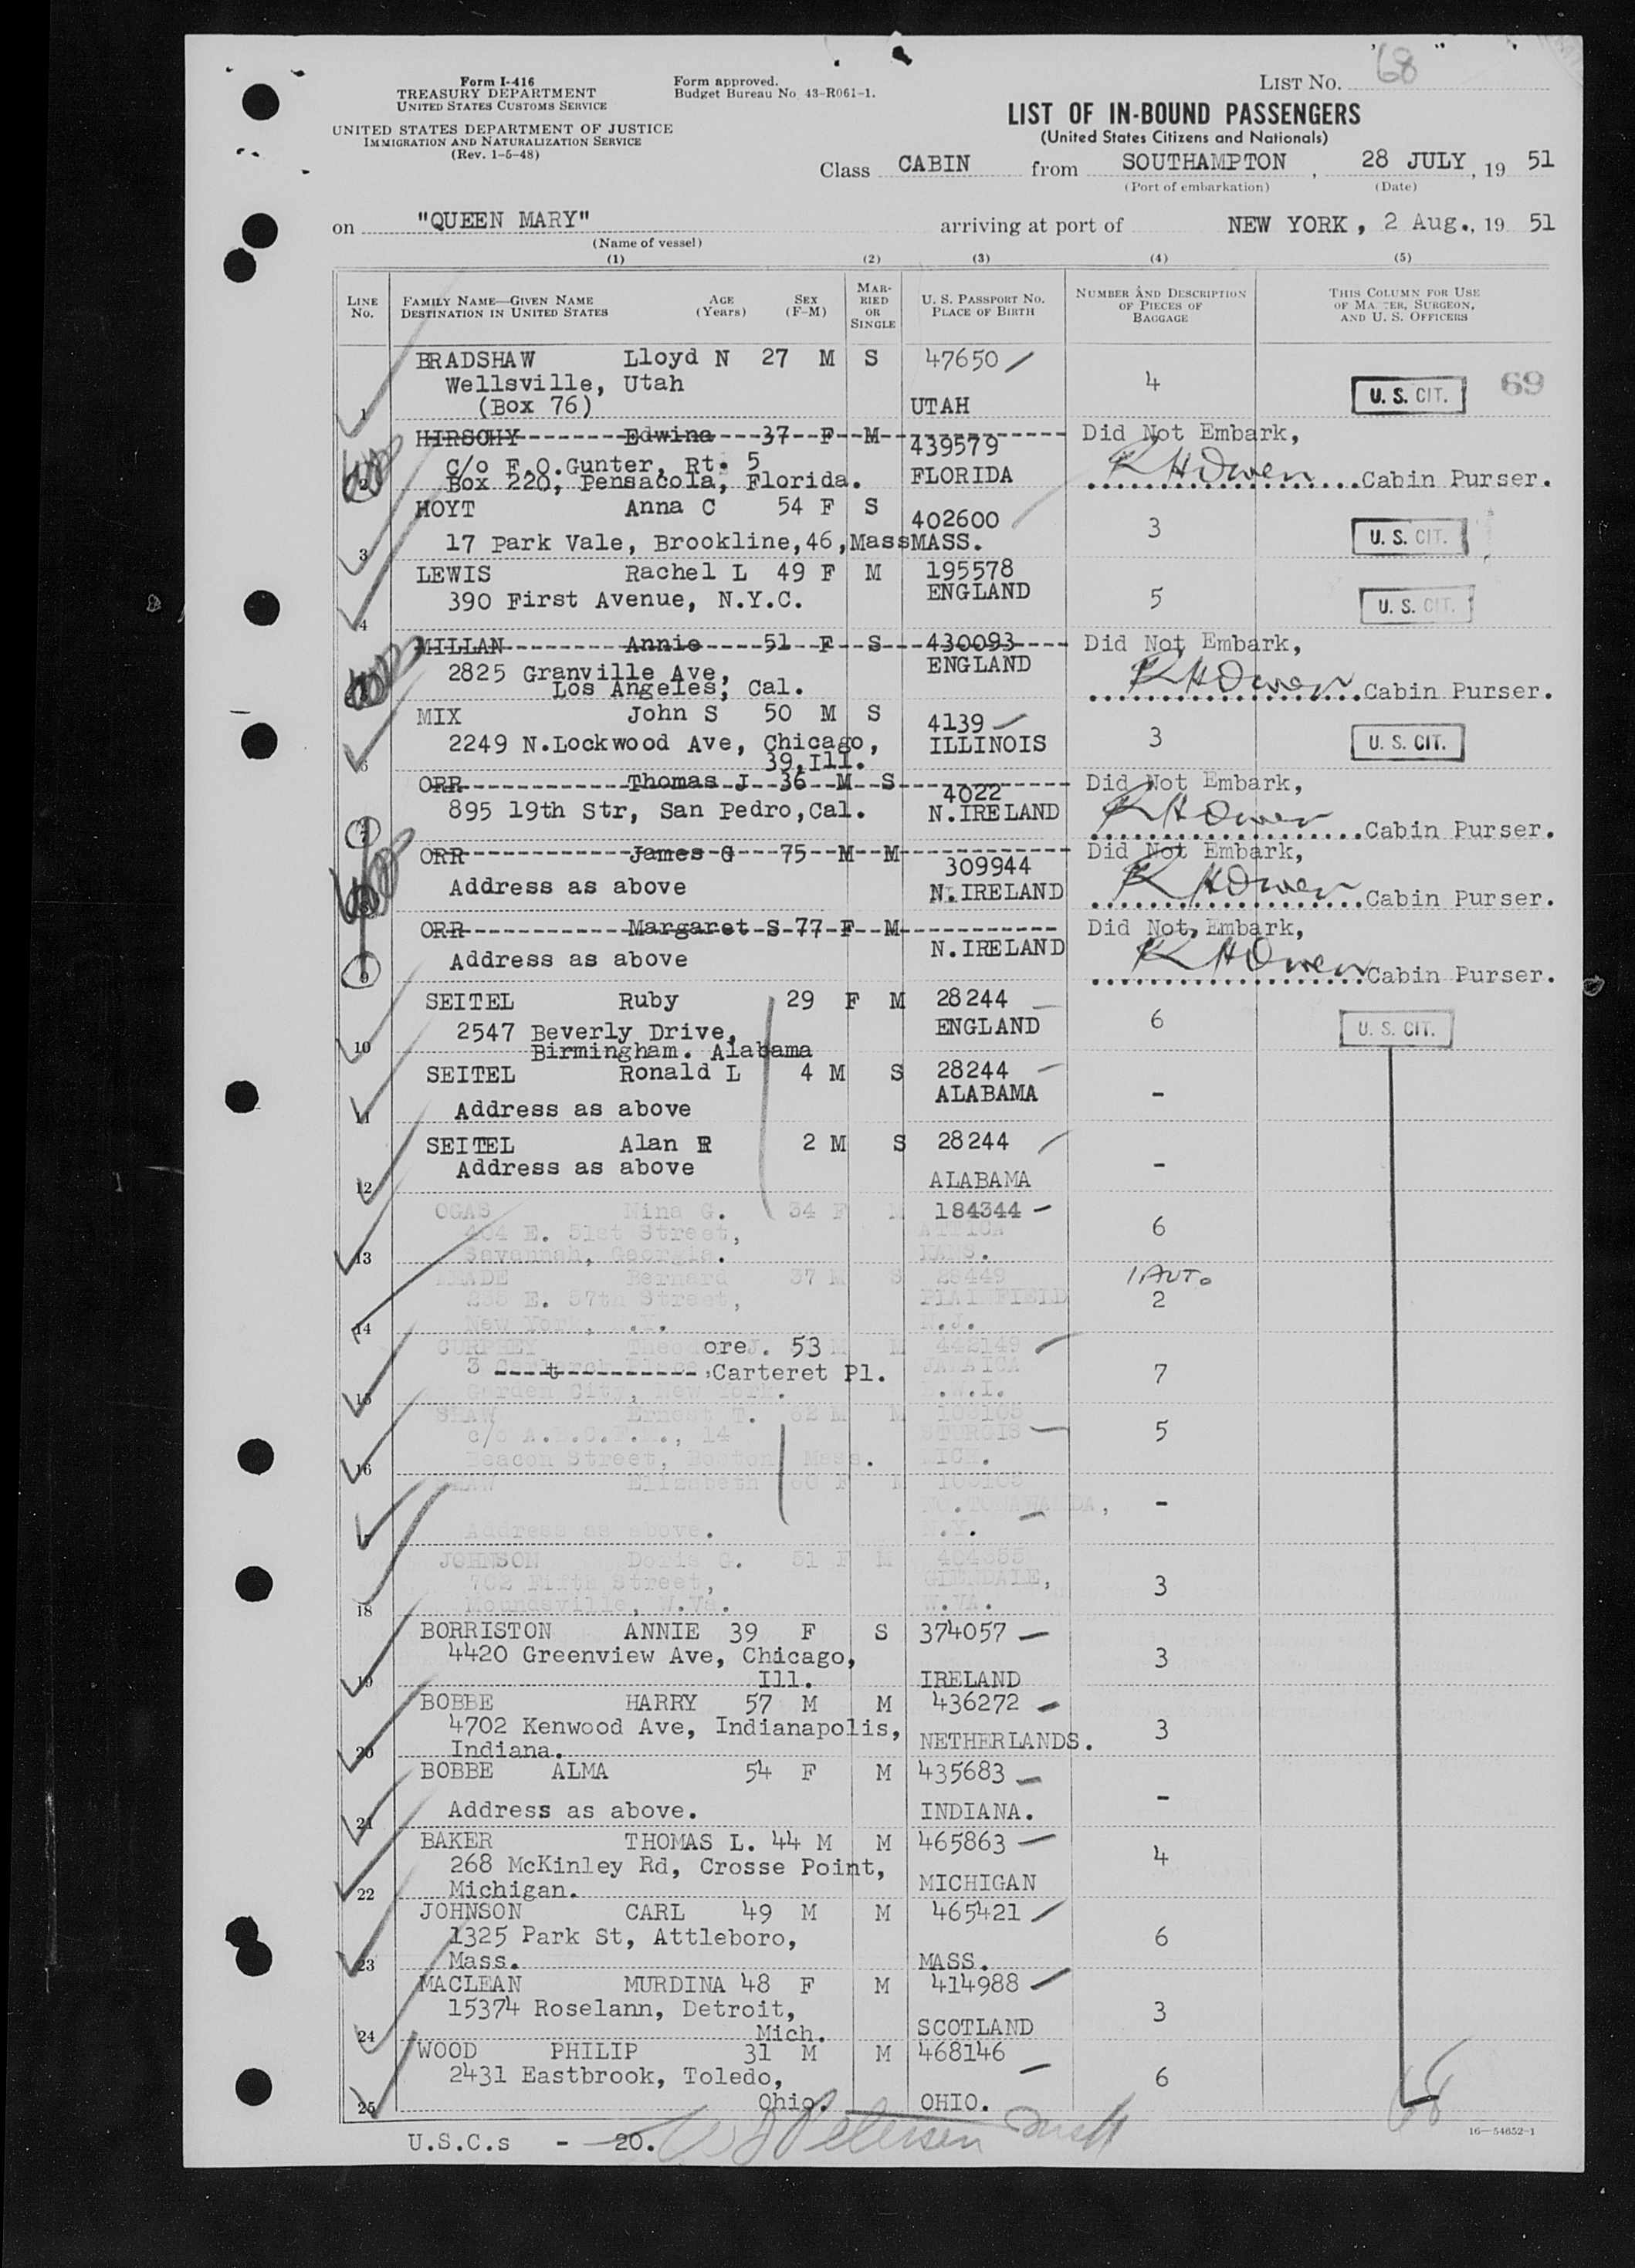 68
Form I-416
TREASURY DEPARTMENT
UNITED STATES CUSTOMS SERVICE
UNITED STATES DEPARTMENT OF JUSTICE
IMMIGRATION AND NATURALIZATION SERVICE
(Rev. 1-5-48)
Form approved.
Budget Bureau No. 43-R061-1.
LIST No.
LIST OF IN-BOUND PASSENGERS
(United States Citizens and Nationals)
Class CABIN from SOUTHAMPTON, 28 JULY, 19 51
(Port of embarkation) (Date)
on "QUEEN MARY" arriving at port of NEW YORK, 2 Aug., 19 51
(Name of vessel)
(1) (2) (3) (4) (5)
LINE No. FAMILY NAME—GIVEN NAME DESTINATION IN UNITED STATES AGE (Years) SEX (F-M) MARRIED OR SINGLE U. S. PASSPORT No. PLACE OF BIRTH NUMBER AND DESCRIPTION OF PIECES OF BAGGAGE THIS COLUMN FOR USE OF MASTER, SURGEON, AND U. S. OFFICERS
BRADSHAW Lloyd N 27 M S 47650
Wellsville, Utah 4 U. S. CIT. 69
1 (Box 76) UTAH
HIRSCHY Edwina 37 F M 439579 Did Not Embark,
C/o F.O.Gunter, Rt. 5
2 Box 220, Pensacola, Florida. FLORIDA R H Owen Cabin Purser.
HOYT Anna C 54 F S 402600
3 17 Park Vale, Brookline,46,Mass MASS. 3 U. S. CIT.
LEWIS Rachel L 49 F M 195578
390 First Avenue, N.Y.C. ENGLAND 5 U. S. CIT.
4
MILLAN Annie 51 F S 430093 Did Not Embark,
2825 Granville Ave, ENGLAND
Los Angeles, Cal. R H Owen Cabin Purser.
MIX John S 50 M S 4139
2249 N.Lockwood Ave, Chicago, ILLINOIS 3 U. S. CIT.
6 39,Ill.
ORR Thomas J 36 M S 4022 Did Not Embark,
895 19th Str, San Pedro,Cal. N.IRELAND
7 R H Owen Cabin Purser.
ORR James G 75 M M 309944 Did Not Embark,
Address as above N.IRELAND
8 R H Owen Cabin Purser.
ORR Margaret S 77 F M Did Not Embark,
Address as above N.IRELAND
9 R H Owen Cabin Purser.
SEITEL Ruby 29 F M 28244
2547 Beverly Drive, ENGLAND 6 U. S. CIT.
10 Birmingham. Alabama
SEITEL Ronald L 4 M S 28244
11 Address as above ALABAMA -
SEITEL Alan R 2 M S 28244
Address as above -
12 ALABAMA
OGAS Nina G. 34 F M 184344
404 E. 51st Street, ATTICA 6
13 Savannah, Georgia. KANS.
Bernard 37 M S 28449 1 AUTO
E. 57th Street, PLAINFIELD 2
14 New York, N.Y. N.J.
CURPHEY Theodore J. 53 M M 442149
3 Carteret Pl. JAMAICA 7
15 Garden City, New York. B.W.I.
SHAW Ernest T. 62 M M
c/o 14 STURGIS 5
16 Beacon Street, Boston, Mass. MICH.
SHAW Elizabeth 60 F M
NO.TONAWANDA, -
17 Address as above. N.Y.
JOHNSON Doris G. 51 F M
702 Fifth Street, GLENDALE, 3
18 Moundsville, W.Va. W.VA.
BORRISTON ANNIE 39 F S 374057
4420 Greenview Ave, Chicago, 3
19 Ill. IRELAND
BOBBE HARRY 57 M M 436272
4702 Kenwood Ave, Indianapolis, NETHERLANDS. 3
20 Indiana.
BOBBE ALMA 54 F M 435683
21 Address as above. INDIANA. -
BAKER THOMAS L. 44 M M 465863
268 McKinley Rd, Crosse Point, 4
22 Michigan. MICHIGAN
JOHNSON CARL 49 M M 465421
1325 Park St, Attleboro, 6
23 Mass. MASS.
MACLEAN MURDINA 48 F M 414988
15374 Roselann, Detroit, 3
24 Mich. SCOTLAND
WOOD PHILIP 31 M M 468146
2431 Eastbrook, Toledo, 6
25 Ohio. OHIO. 68
U.S.C.s - 20. Petersen
16—54652-1